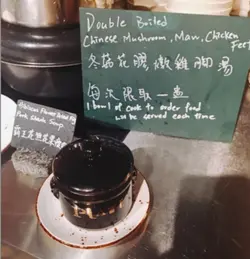 Double Boiled
Chinese Mushroom, Maw, Chicken
Feet
冬菇花膠燉雞腳湯
每次限取一盅
1 bowl of cook to order food
will be served each time
Hibiscus Flower, Dried Fig
Pork Shank Soup
霸王花無花果